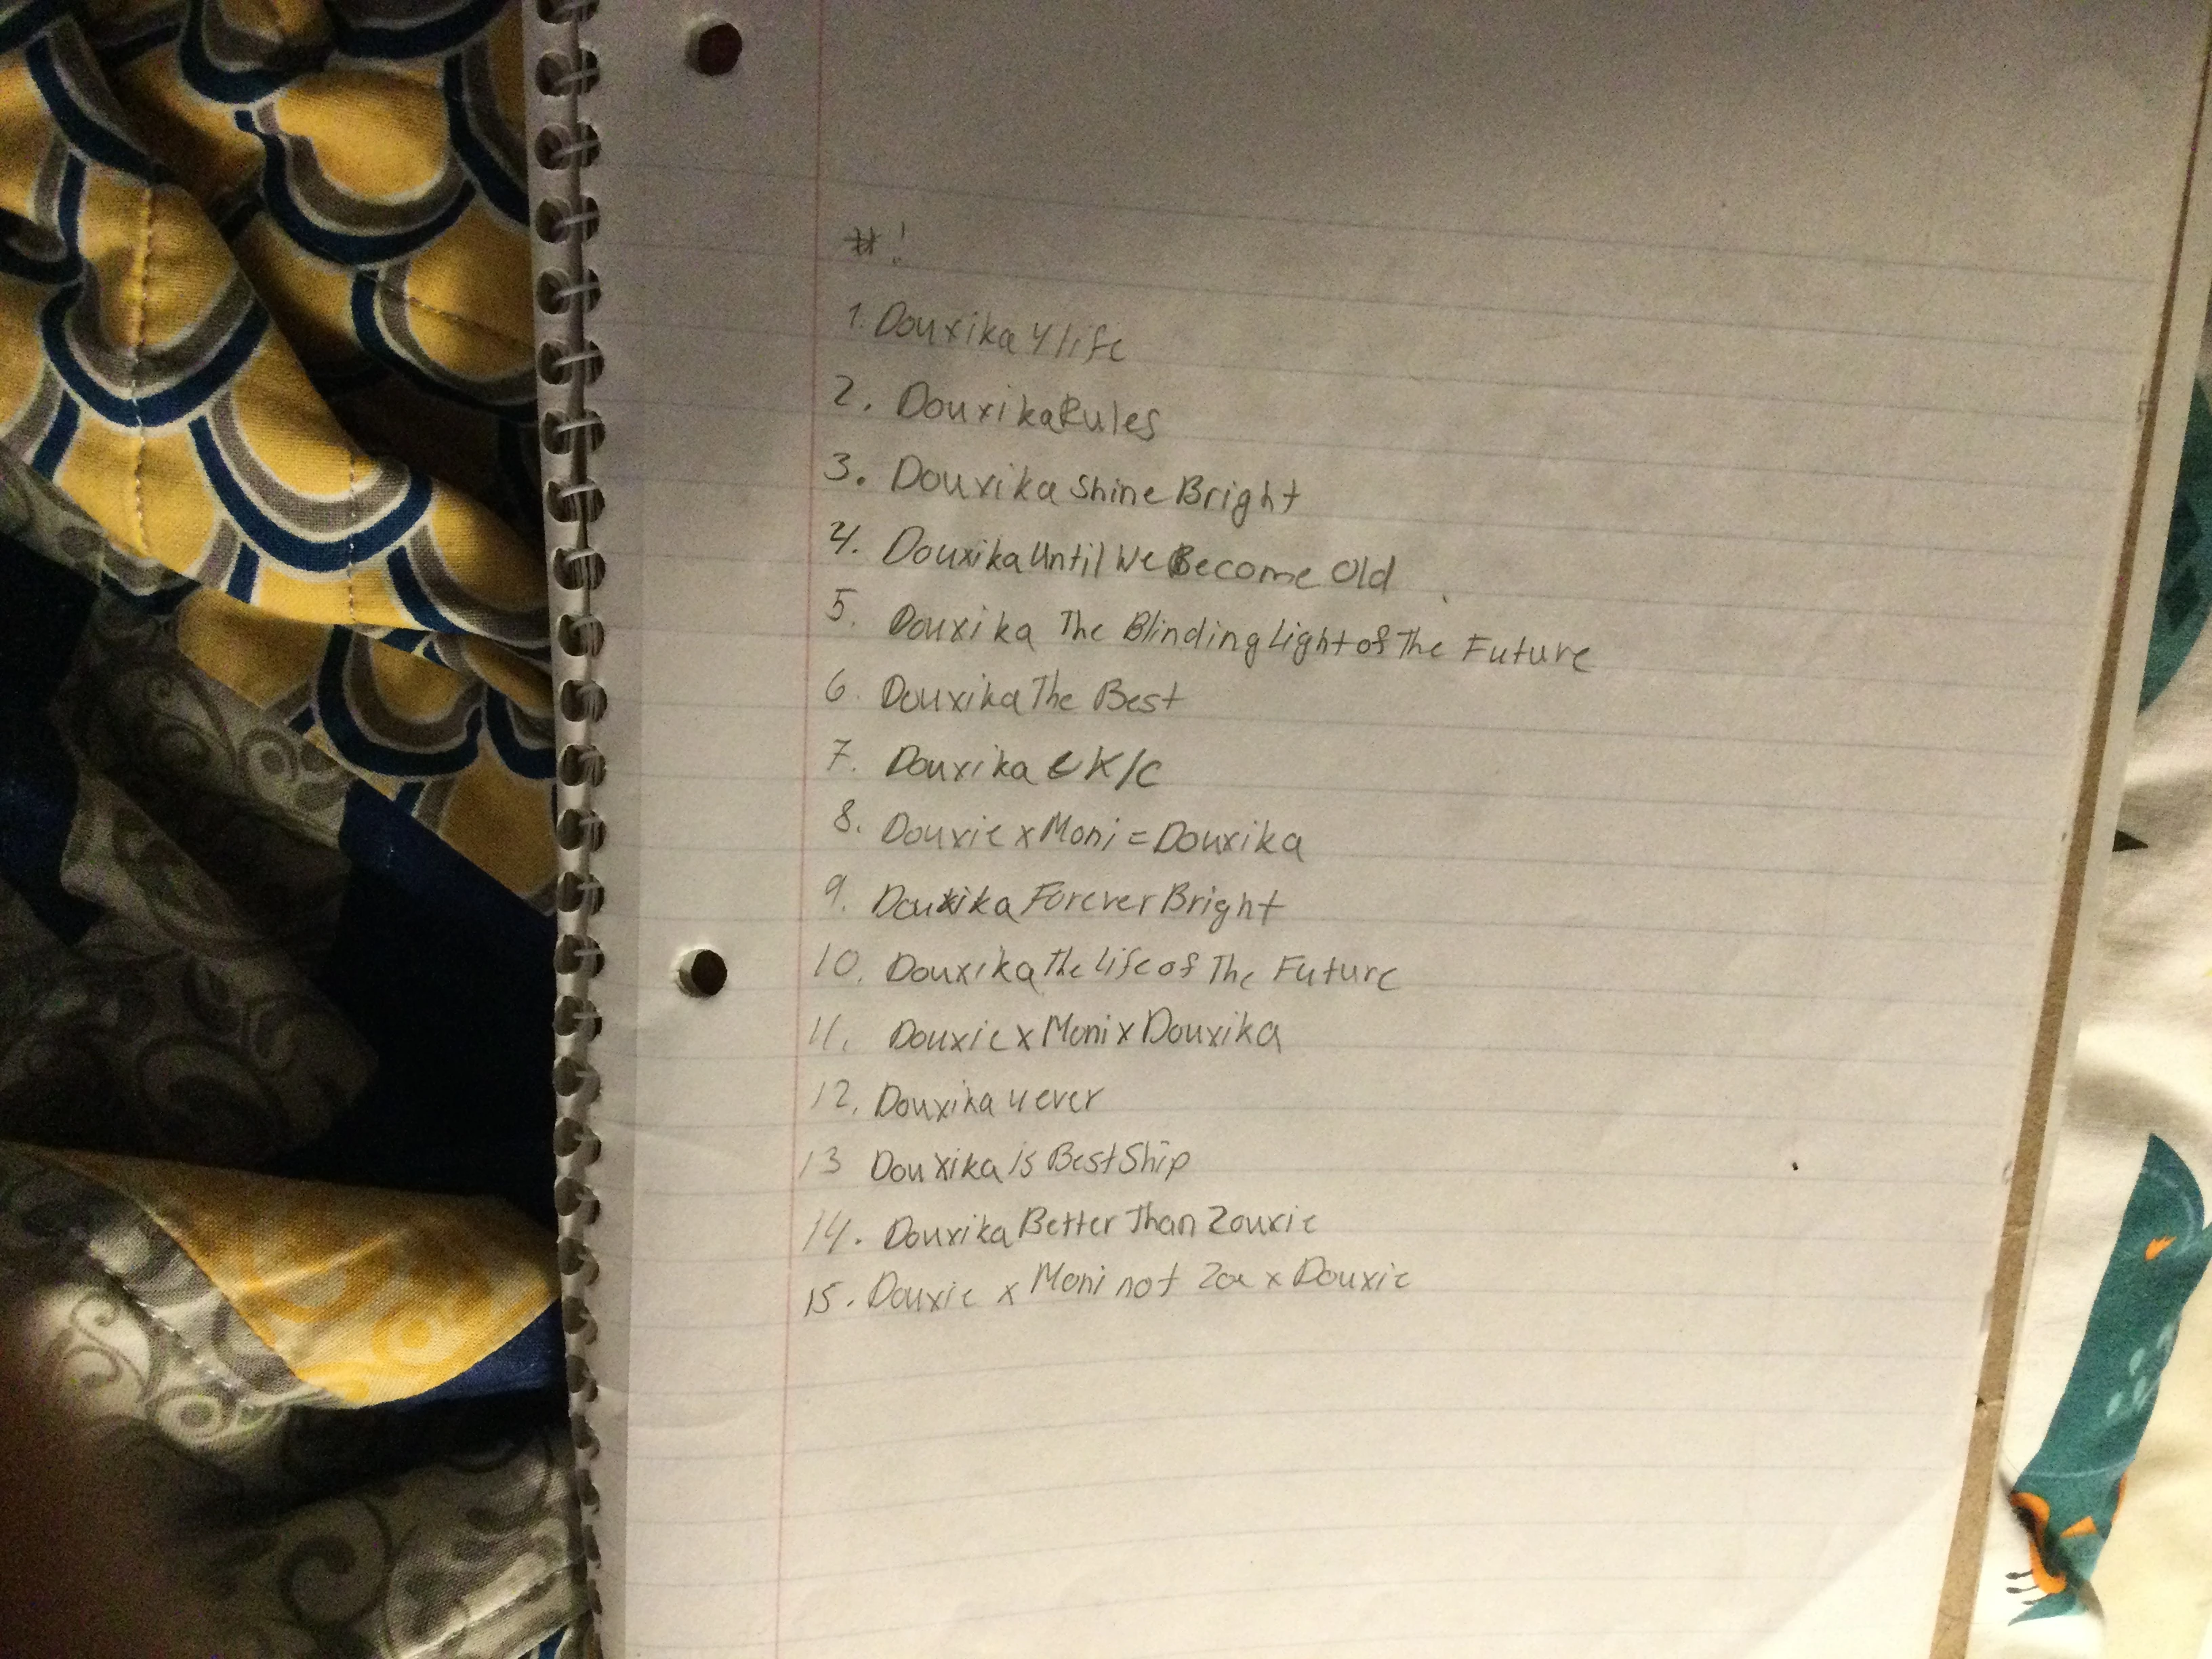 #!
1. Douxika 4 life
2. Douxika Rules
3. Douxika Shine Bright
4. Douxika Until We Become Old
5. Douxika The Blinding Light of The Future
6. Douxika The Best
7. Douxika K/C
8. Douxie x Moni = Douxika
9. Douxika Forever Bright
10. Douxika The Life of The Future
11. Douxie x Moni x Douxika
12. Douxika 4 ever
13 Douxika is Best Ship
14. Douxika Better Than Zouxie
15. Douxie x Moni not Zoe x Douxie